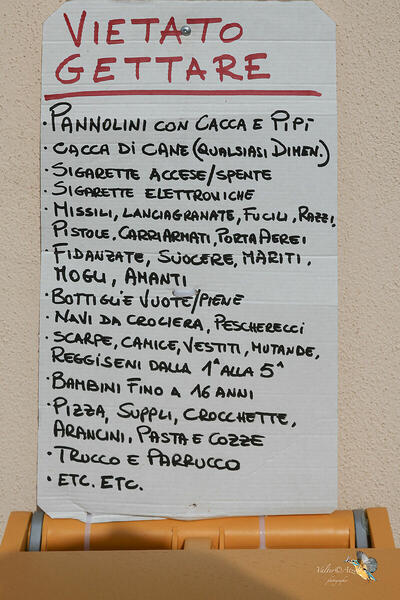 VIETATO
GETTARE
· PANNOLINI CON CACCA E PIPÌ
· CACCA DI CANE (QUALSIASI DIMEN.)
· SIGARETTE ACCESE/SPENTE
· SIGARETTE ELETTRONICHE
· MISSILI, LANCIAGRANATE, FUCILI, RAZZI,
PISTOLE, CARRIARMATI, PORTAEREI
· FIDANZATE, SUOCERE, MARITI,
MOGLI, AMANTI
· BOTTIGLIE VUOTE/PIENE
· NAVI DA CROCIERA, PESCHERECCI
· SCARPE, CAMICE, VESTITI, MUTANDE,
REGGISENI DALLA 1ª ALLA 5ª
· BAMBINI FINO A 16 ANNI
· PIZZA, SUPPLI, CROCCHETTE,
ARANCINI, PASTA E COZZE
· TRUCCO E PARRUCCO
· ETC. ETC.
photographer